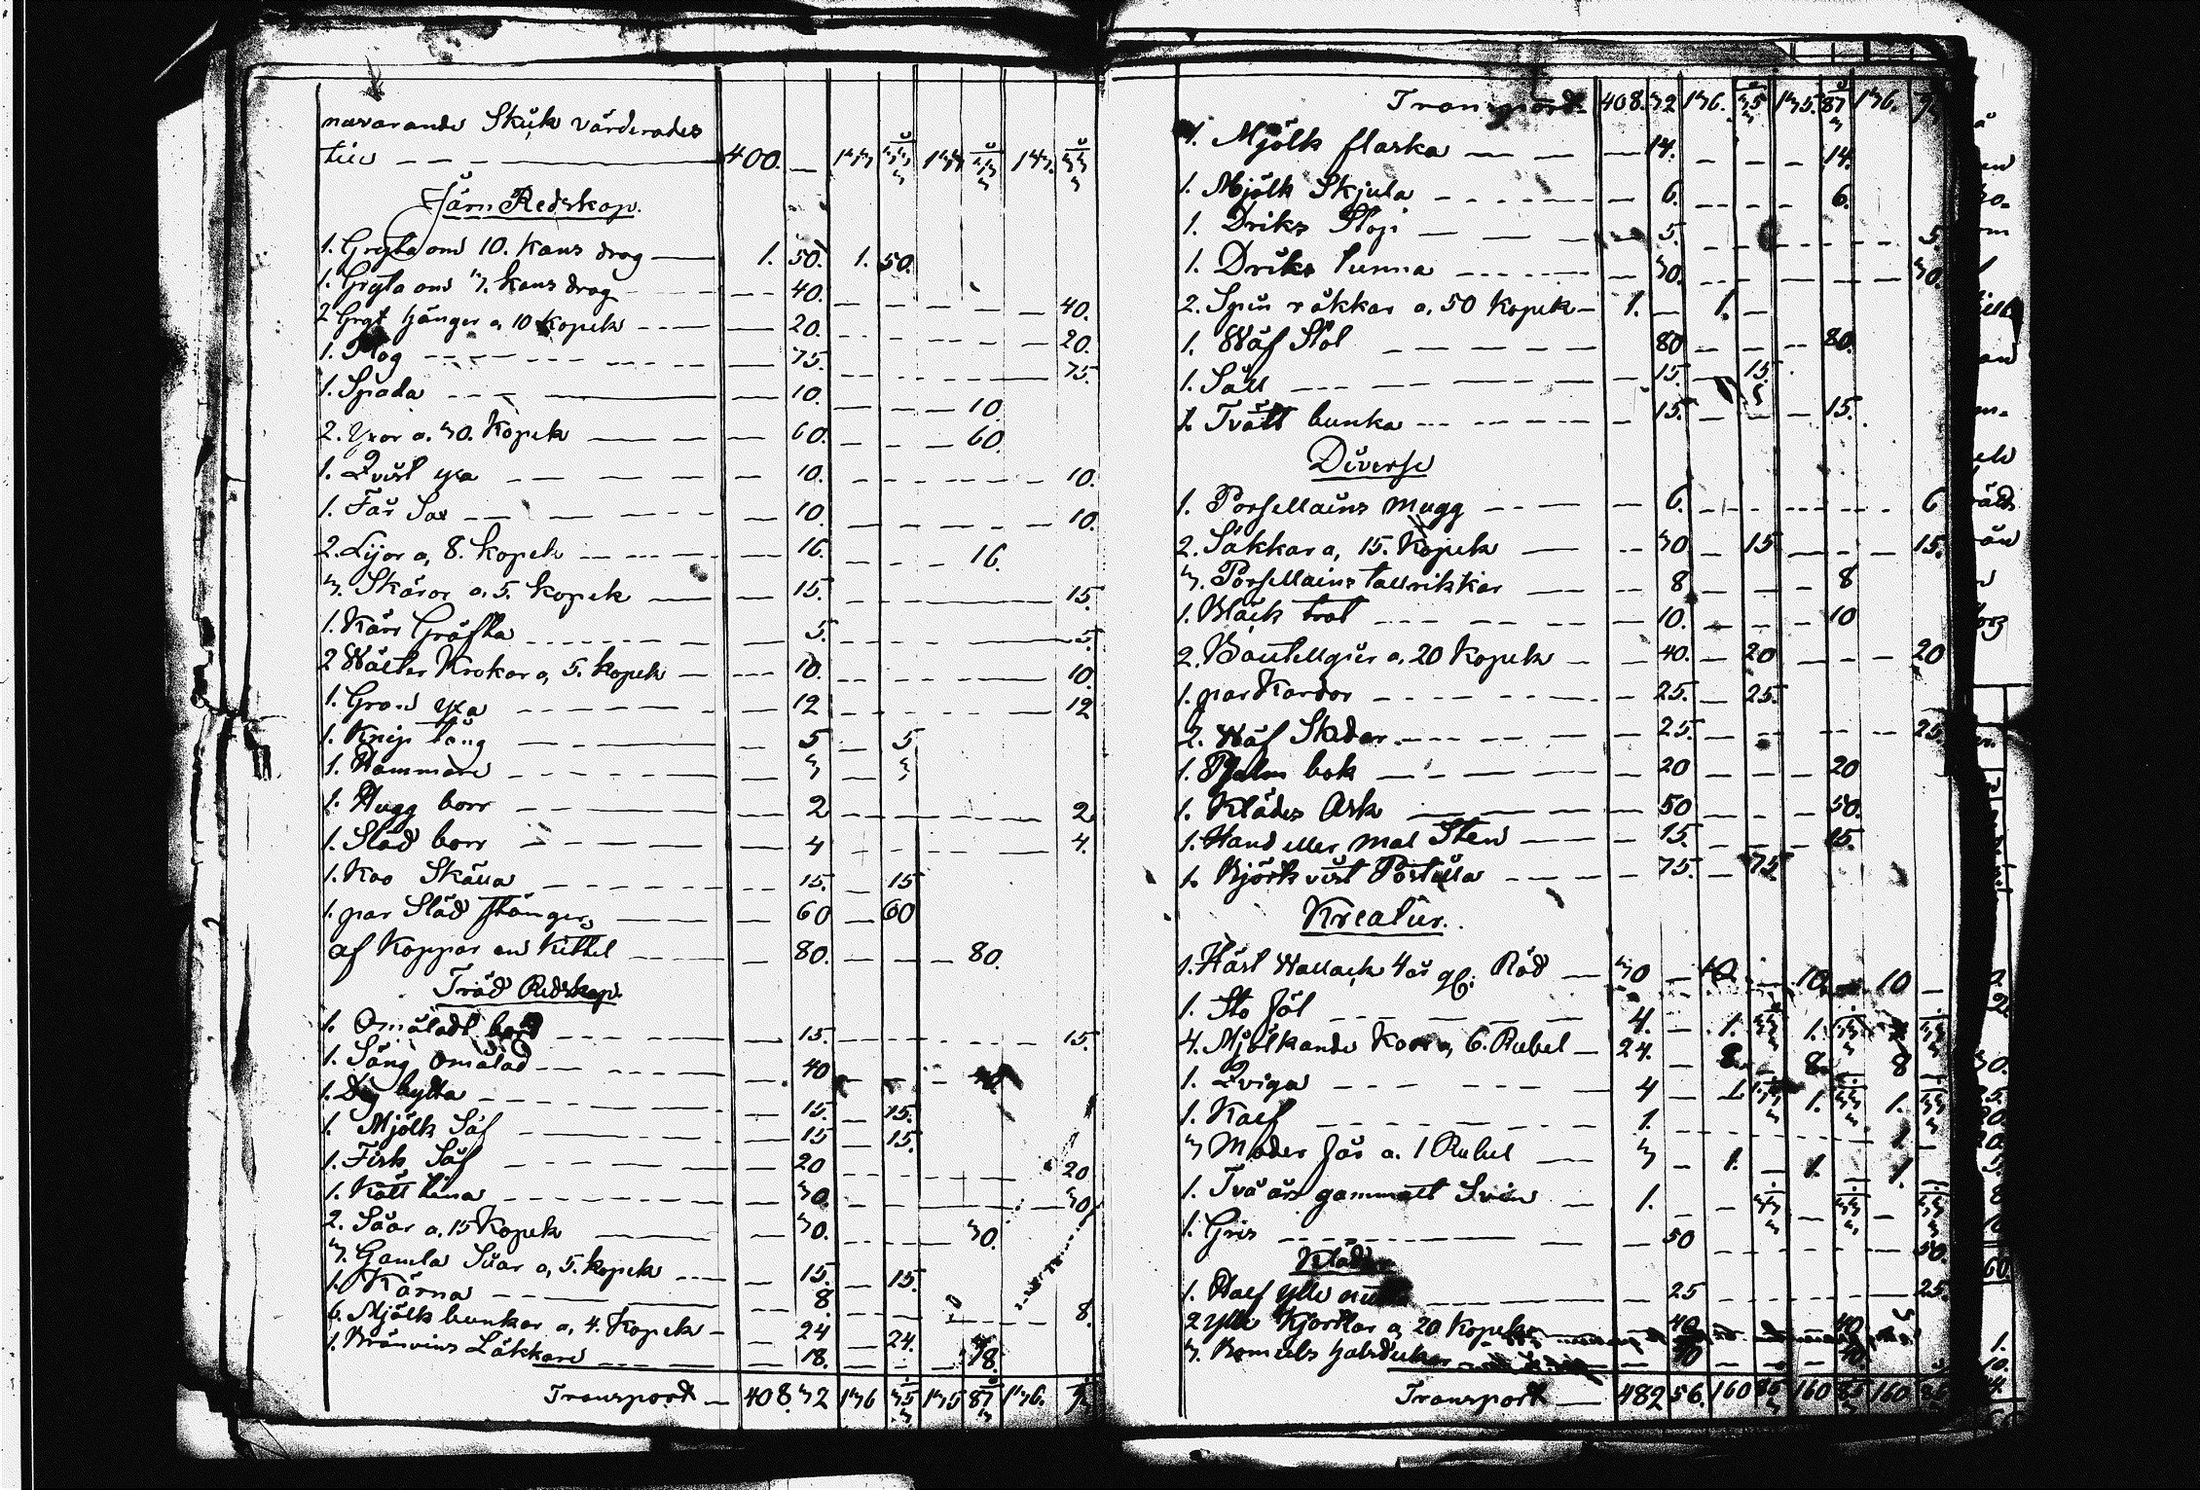 navarande Skick värderades
till — 400. — 133 33 133 33 133. 33
Järn Redskap.
1. Gryta om 10. Kans drag — 1. 50. 1. 50.
1. Gryta om 3. Kans drag — 40. 40.
2 Gryt hänger a 10 Kopek — 20. 20.
1. Plog — 75. 75.
1. Spada — 10. 10.
2. Yxor a. 30. Kopek — 60. 60.
1. Qvist yxa — 10. 10.
1. Får Sax — 10. 10.
2. Lijor a, 8. Kopek — 16. 16.
3. Skäror a. 5. Kopek — 15. 15.
1. Kärr Gräfta — 5. 5.
2 Krokar a, 5. Kopek — 10. 10.
1. yxa — 12 12
1. Knip tång — 5 5
1. Hammare — 3 3
1. Hugg borr — 2 2
1. Slad borr — 4 4.
1. Koo Skälla — 15. 15
1. par Släd stänger — 60 60
af Koppar en Kittel — 80. 80.
Träd Redskap
1. Omåladt bord — 15. 15.
1. Säng Omålad — 40 40
1. Dig bytta — 15. 15.
1. Mjölk Såf — 15 15.
1. Fisk Såf — 20 20
1. Kått tina — 30. 30
2. Såar a. 15 Kopek — 30. 30.
3. Gamla Såar a, 5. Kopek — 15. 15.
1. Kärna — 8 8.
6. Mjölk bunkar a, 4. Kopek — 24 24.
1. Bränvins Läkkare — 18. 18.
Transport — 408. 32 136 35 135 87 136.
Transport 408. 32 136. 35 135. 87 136.
1. Mjölk flaska — 14. 14.
1. Mjölk Skjula — 6. 6.
1. Driks Stop — 5. 5.
1. Driks tunna — 30. 30.
2. Spin råkkar a. 50 Kopek — 1. 1.
1. Wäf Stol — 80 80.
1. Såll — 15. 15
1. Tvätt bunka — 15. 15.
Diverse
1. Porsellains Mugg — 6. 6
2. Säkkar a, 15. Kopek — 30 15 15.
3. Porsellains tallrikkar — 8 8
1. Bläck trat — 10. 10
2. Boutellgier a, 20 Kopek — 40. 20 20
1. par Kardor — 25. 25.
2. Wäf Skedar — 25. 25.
1. Psalm bok — 20 20
1. Klädes Ark — 50 50.
1. Hand eller Mal Sten — 15. 15.
1. Björkvist Postilla — 75. 75.
Kreatur.
1. Häst Wallack 4 år gl. Röd — 30 10 10 10
1. Sto föl — 4. 1. 33 1. 33 33
4. Mjölkande Koor a, 6. Rubel — 24. 8 8 8
1. Qviga — 4 1. 33 1. 33 1. 33
1. Kalf — 1. 1.
3 Moder får a. 1 Rubel — 3 1. 1. 1.
1. Två års gammalt Svin — 1. 33 33 33
1. Gris — 50 50.
Kläder
1. Half ylle — 25 25.
2 ylle Kjortlar a, 20 Kopek — 40 40
3. Bomuls halsdukar — 40.
Transport — 482 56. 160 85 160 85 160 85